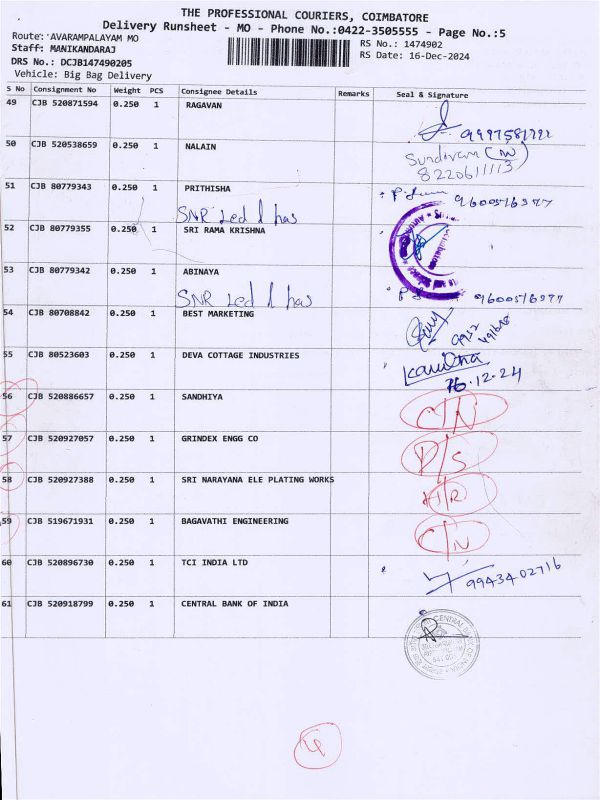 THE PROFESSIONAL COURIERS, COIMBATORE
Delivery Runsheet - MO - Phone No.:0422-3505555 - Page No.:5
Route: AVARAMPALAYAM MO
Staff: MANIKANDARAJ
DRS No.: DCJB147490205
Vehicle: Big Bag Delivery
RS No.: 1474902
RS Date: 16-Dec-2024
S No Consignment No Weight PCS Consignee Details Remarks Seal & Signature
49 CJB 520871594 0.250 1 RAGAVAN
50 CJB 520538659 0.250 1 NALAIN
8220611113
51 CJB 80779343 0.250 1 PRITHISHA 9600516977
SNR Led
52 CJB 80779355 0.250 1 SRI RAMA KRISHNA
53 CJB 80779342 0.250 1 ABINAYA
SNR Led 9600516977
54 CJB 80708842 0.250 1 BEST MARKETING
55 CJB 80523603 0.250 1 DEVA COTTAGE INDUSTRIES
16.12.24
56 CJB 520886657 0.250 1 SANDHIYA C/N
57 CJB 520927057 0.250 1 GRINDEX ENGG CO D/S
58 CJB 520927388 0.250 1 SRI NARAYANA ELE PLATING WORKS
59 CJB 519671931 0.250 1 BAGAVATHI ENGINEERING C/N
60 CJB 520896730 0.250 1 TCI INDIA LTD 9943402716
61 CJB 520918799 0.250 1 CENTRAL BANK OF INDIA
CENTRAL BANK OF INDIA